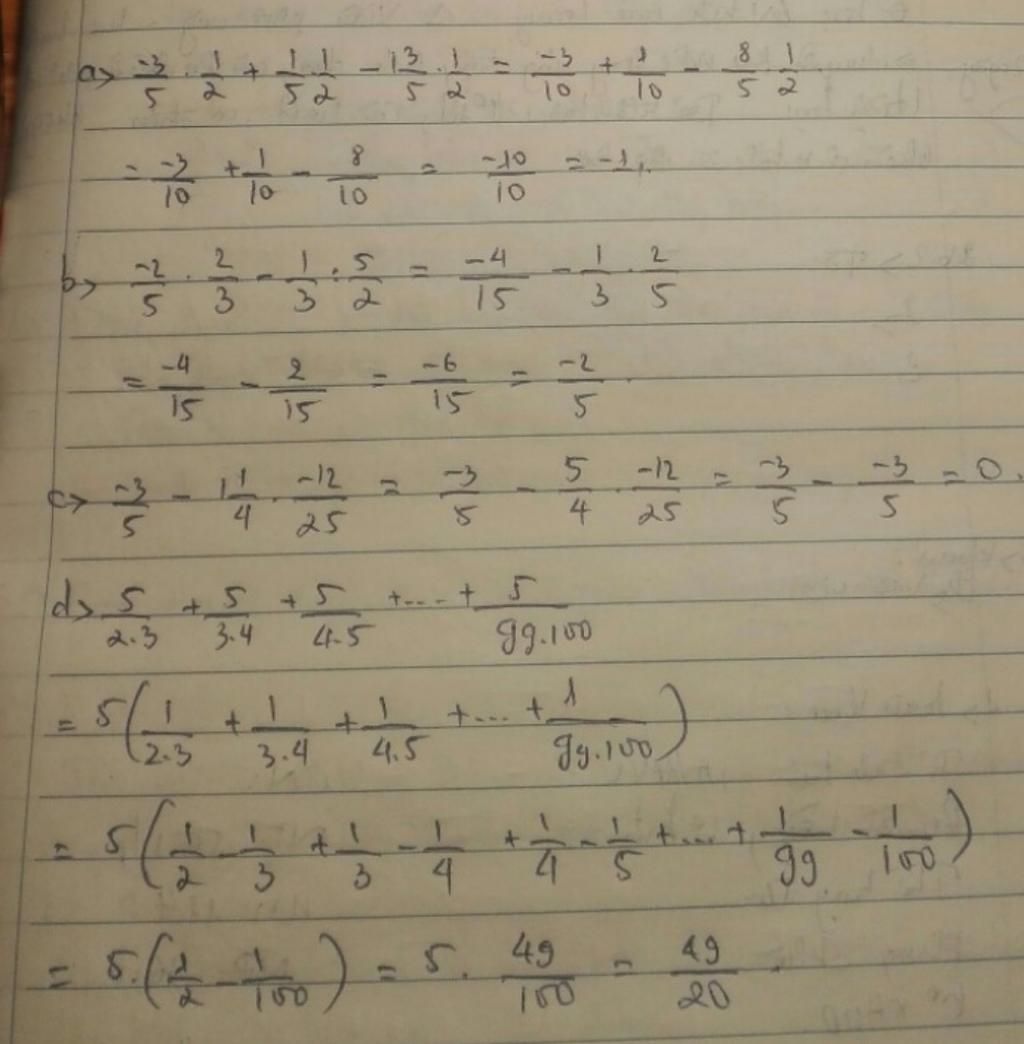 a> -3/5 . 1/2 + 1/5 . 1/2 - 1 3/5 . 1/2 = -3/10 + 1/10 - 8/5 . 1/2
= -3/10 + 1/10 - 8/10 = -10/10 = -1.
b> -2/5 . 2/3 - 1/3 : 5/2 = -4/15 - 1/3 . 2/5
= -4/15 - 2/15 = -6/15 = -2/5.
c> -3/5 - 1 1/4 . -12/25 = -3/5 - 5/4 . -12/25 = -3/5 - -3/5 = 0.
d> 5/2.3 + 5/3.4 + 5/4.5 + .... + 5/99.100
= 5 (1/2.3 + 1/3.4 + 1/4.5 + ... + 1/99.100)
= 5 (1/2 - 1/3 + 1/3 - 1/4 + 1/4 - 1/5 + ... + 1/99 - 1/100)
= 5. (1/2 - 1/100) = 5. 49/100 = 49/20.